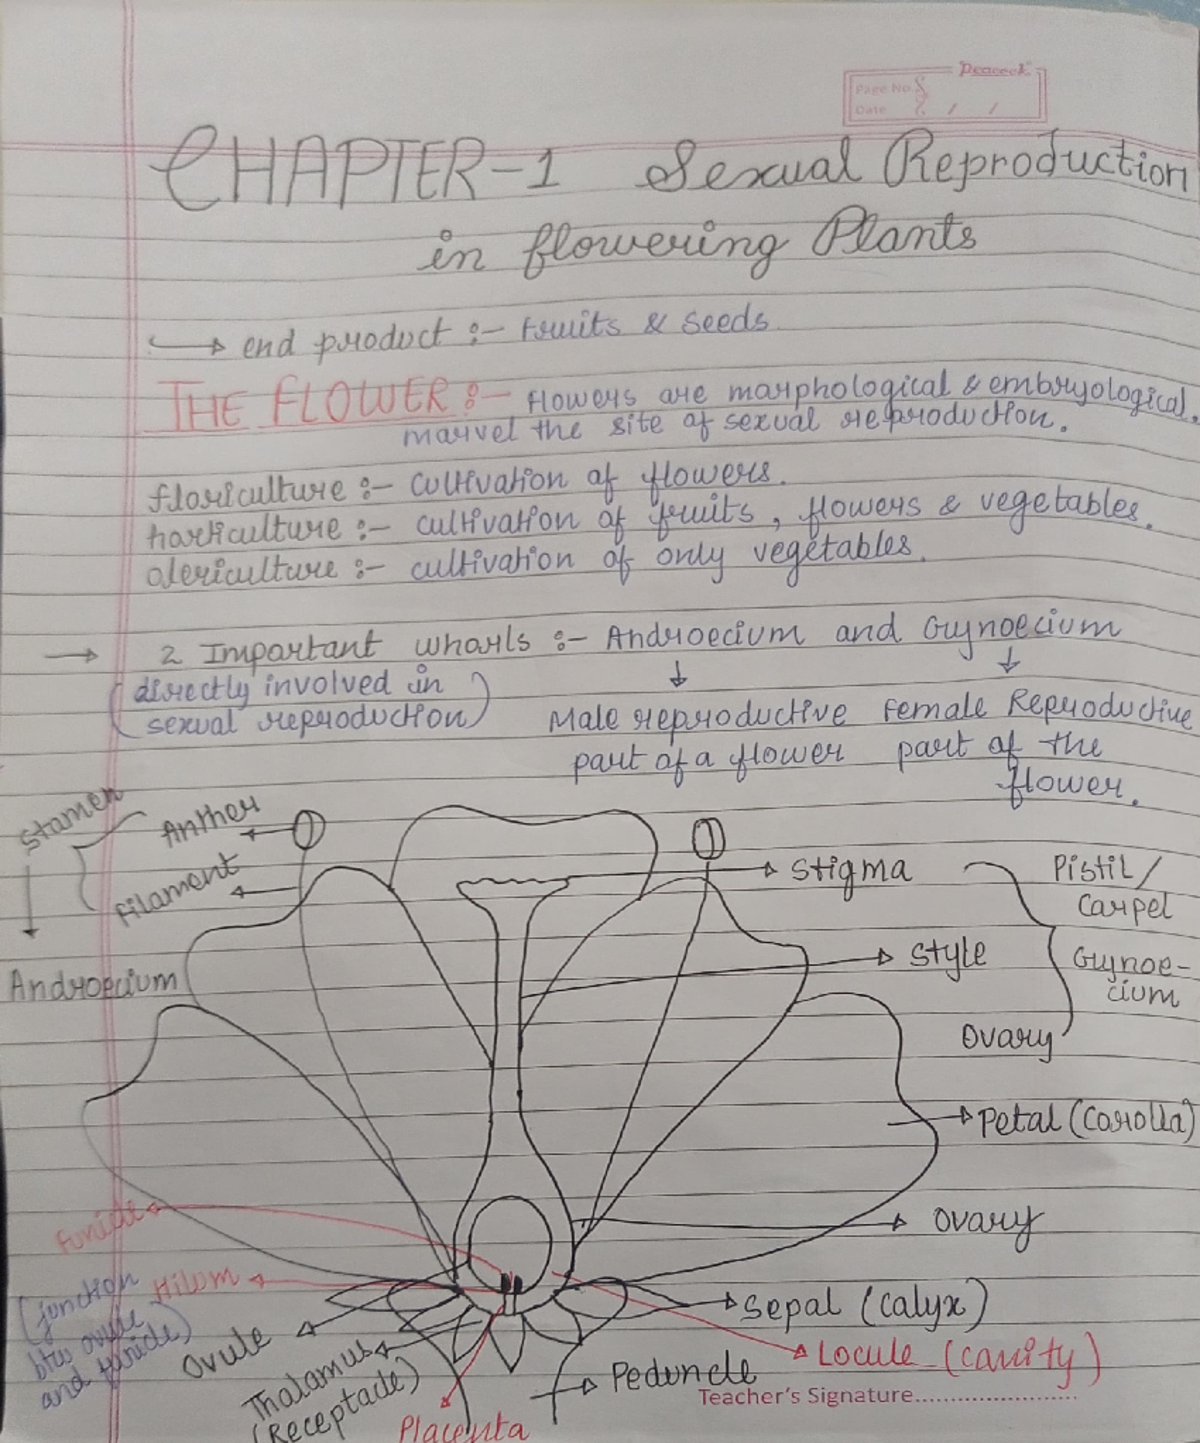 Peacock
Page No. 8
Date / /
CHAPTER-1 Sexual Reproduction
in flowering Plants
→ end product :- Fruits & Seeds
THE FLOWER :- Flowers are morphological & embryological
marvel the site of sexual reproduction.
floriculture :- cultivation of flowers.
horticulture :- cultivation of fruits, flowers & vegetables.
olericulture :- cultivation of only vegetables.
→ 2 Important whorls :- Androecium and Gynoecium
(directly involved in
sexual reproduction)
↓ ↓
Male reproductive Female Reproductive
part of a flower part of the
flower.
Stamen
Anther
Filament
Androecium
Stigma
Style
Ovary
Pistil/
Carpel
Gynoe-
cium
Petal (Corolla)
Ovary
Funicle
Hilum
(junction
btw ovule
and funicle)
Ovule
Thalamus
(Receptacle)
Placenta
Sepal (Calyx)
Locule (cavity)
Peduncle
Teacher's Signature